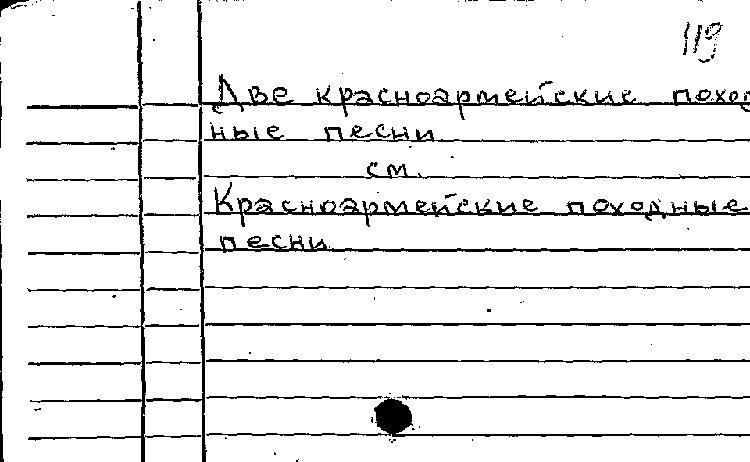 119
Две красноармейские поход
ные песни
см.
Красноармейские походные
песни